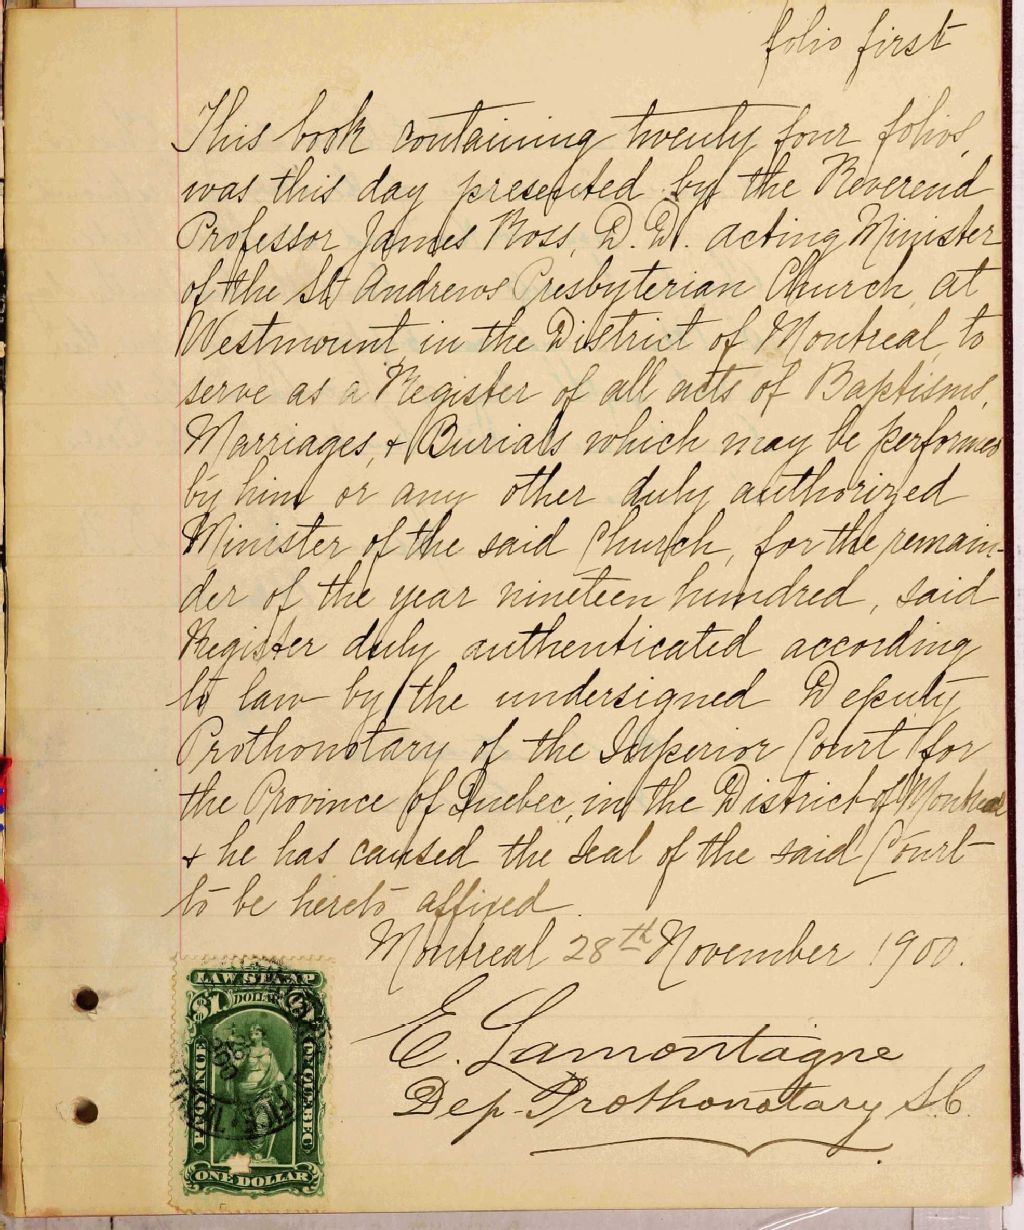 folio first
This book containing twenty four folios,
was this day presented by the Reverend
Professor James Ross, D.D. acting Minister
of the St Andrews Presbyterian Church, at
Westmount, in the District of Montreal, to
serve as a Register of all acts of Baptisms,
Marriages, & Burials which may be performed
by him or any other duly authorized
Minister of the said Church, for the remain-
der of the year nineteen hundred, said
Register duly authenticated according
to law by the undersigned Deputy
Prothonotary of the Superior Court for
the Province of Quebec, in the District of Montreal
& he has caused the Seal of the said Court
to be hereto affixed.
Montreal 28th November 1900.
E. Lamontagne
Dep. Prothonotary S.C.
LAW STAMP
$1 DOLLAR
PROVINCE QUEBEC
ONE DOLLAR